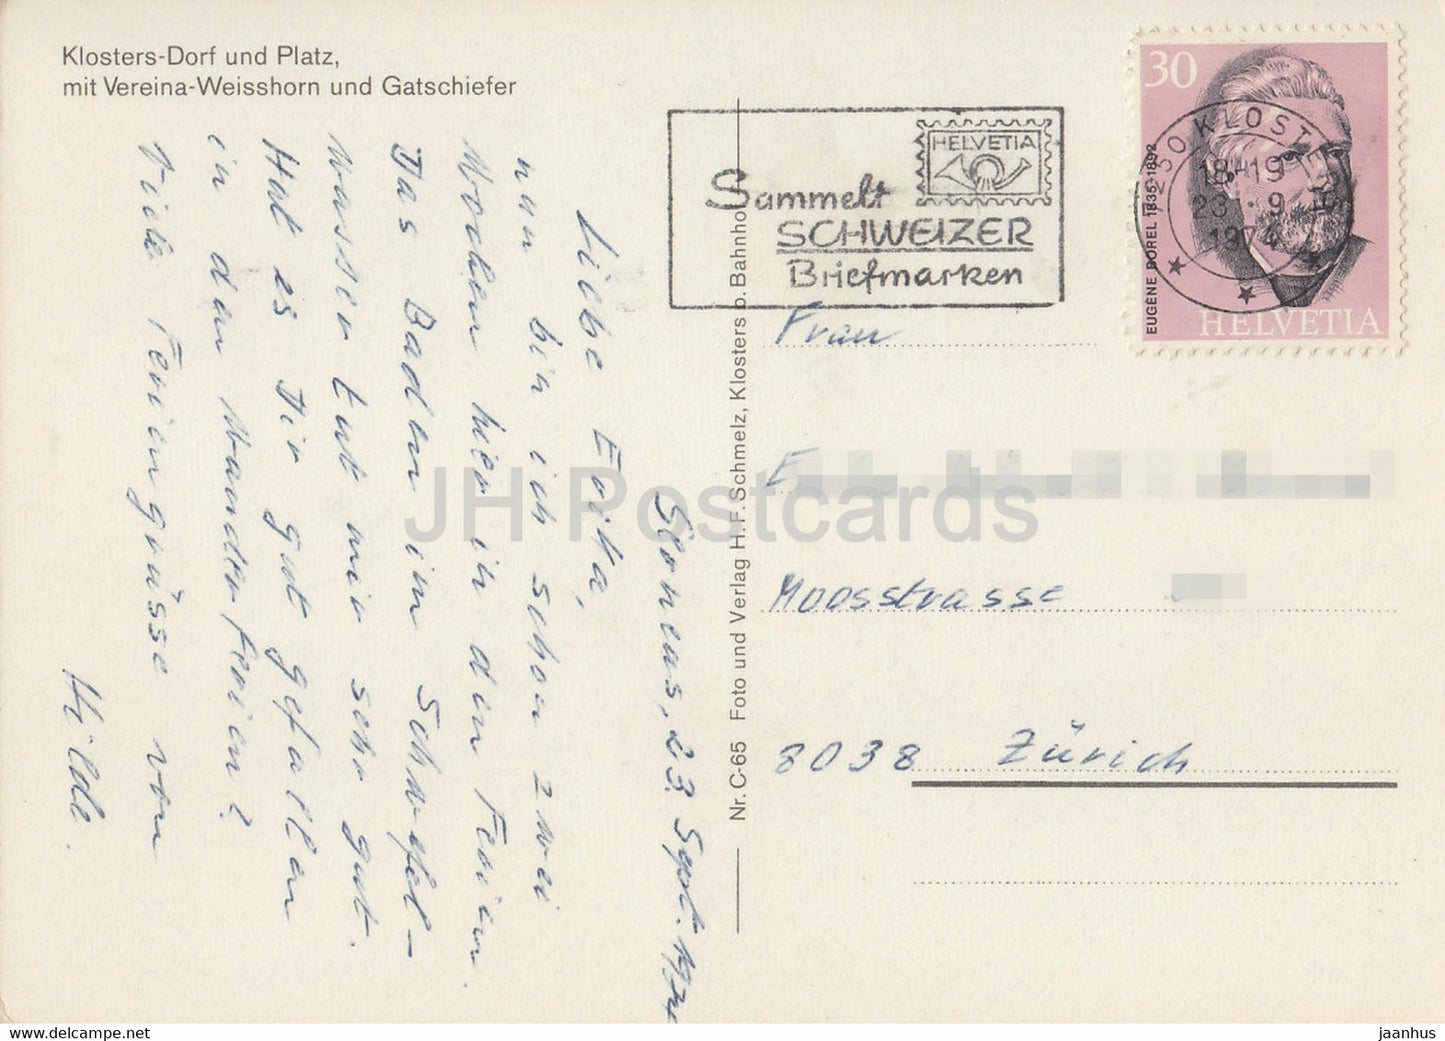 Klosters-Dorf und Platz,
mit Vereina-Weisshorn und Gatschiefer
HELVETIA
Sammelt
SCHWEIZER
Briefmarken
30
EUGÈNE BOREL 1835-1892
HELVETIA
7250 KLOSTERS
18-19
23.-9
1974
23. Sept. 1974
Liebe Erika,
nun bin ich schon zwei
Wochen hier in den Ferien.
Das Baden im Schwefel-
wasser tut mir sehr gut.
Hat es Dir gut gefallen
in den Wanderferien?
Viele Feriengrüsse von
Hilde.
Nr. C-65 Foto und Verlag H. F. Schmelz, Klosters b. Bahnhof
Frau
E
Moosstrasse
8038 Zürich
JH Postcards
www.delcampe.net
jaanhus